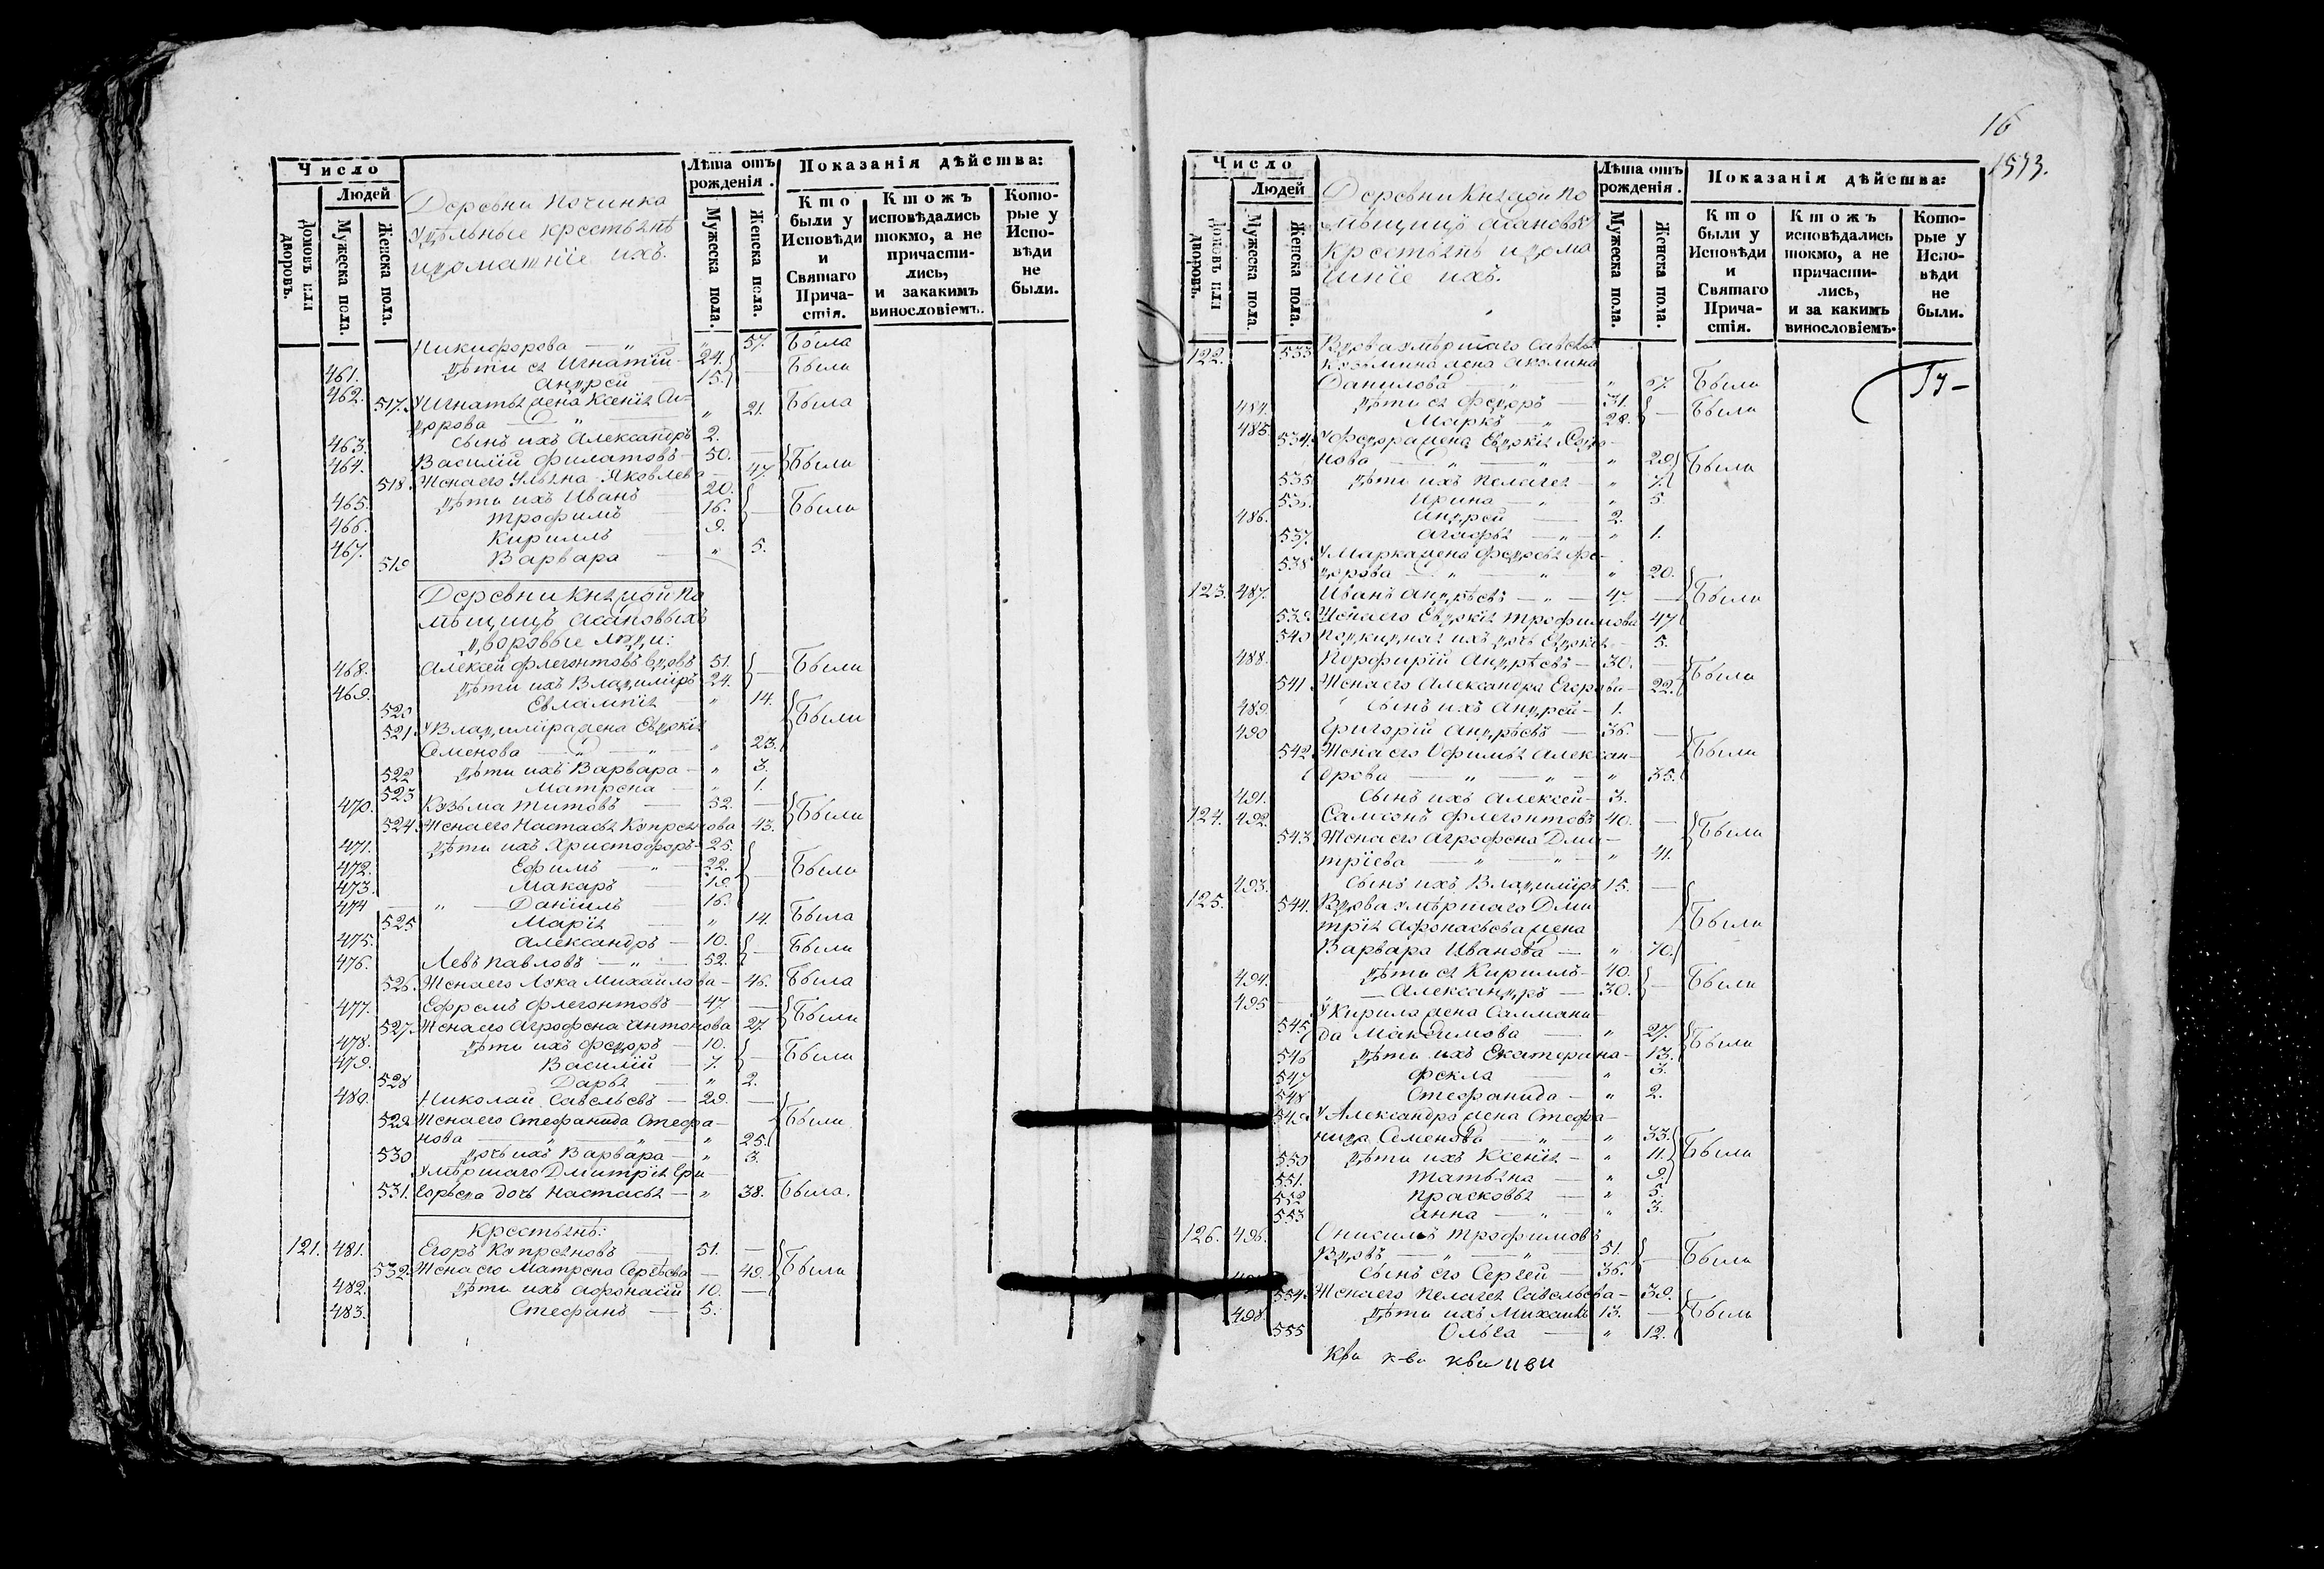 Число
Людей
Домовъ или дворовъ.
Мужеска пола.
Женска пола.
Деревни Починка
Удѣльные крестьянѣ
и домашніе ихъ.
Лѣта отъ рожденія.
Мужеска пола.
Женска пола.
Показанія дѣйства:
Кто были у Исповѣди и Святаго Прича-стія.
Ктожъ исповѣдались токмо, а не причасти-лись, и закакимъ винословіемъ.
Кото-рые у Испо-вѣди не были.
Никифорова — " 57. Была
461. Дѣти ея Игнатій 24. Были
462. Андрей 15.
517. У Игнатья жена Ксенія
дорова — " 21. Была
463. Сынъ ихъ Александръ 2.
464. Василій Филатовъ 50. — Были
518. Жена его Ульяна Яковлева 47.
465. Дѣти ихъ Иванъ 20. — Были
466. Трофимъ 16.
467. Кириллъ 9.
519 Варвара " 5.
Деревни Княжой по
мѣщицъ Асановыхъ
дворовые люди:
468. Алексей Флегонтовъ вдовъ 51. — Были
469. Дѣти ихъ Владиміръ 24.
520 Евлампія " 14. Были
521 У Владиміра жена Евдокія
Семенова — " 23.
522 Дѣти ихъ Варвара — " 3.
523 Матрена " 1.
470. Кузьма Титовъ 52. — Были
524. Жена его Настасья Купреянова 43.
471. Дѣти ихъ Христофоръ 25. Были
472. Ефимъ 22.
473. Макаръ 19.
474 Даніилъ 16.
525 Марія " 14. Была
475. Александръ 10. — Были
476. Левъ Павловъ — " 52.
526. Жена его Лука Михайлова — 46. Была
477. Ефремъ Флегонтовъ — 47 — Были
527. Жена его Агрофена Антонова 27
478. Дѣти ихъ Федоръ — 10. — Были
479. Василій — 7.
528 Дарья — " 2.
480. Николай Савельевъ — 29. — Были
529. Жена его Стефанида Стефа-
нова — " 25.
530 Дочь ихъ Варвара — " 3.
Умѣршаго Дмитрія
531. дочь Настасья — " 38. Была.
Крестьянѣ:
121. 481. Егоръ Купреяновъ 51. — Были
532. Жена его Матрена Сергѣева — 49.
482. Дѣти ихъ Афонасій 10. —
483. Стефанъ — 5.
16
1573.
Число
Людей
Домовъ или дворовъ.
Мужеска пола.
Женска пола.
Деревни Княжой по
мѣщицъ Асановыхъ
Крестьянѣ и дома
шніе ихъ.
Лѣта отъ рожденія.
Мужеска пола.
Женска пола.
Показанія дѣйства:
Кто были у Исповѣди и Святаго Прича-стія.
Ктожъ исповѣдались токмо, а не причасти-лись, и за какимъ винословіемъ.
Кото-рые у Испо-вѣди не были.
122. 533 Вдова умѣршаго Савелья
Кузьмина жена Акулина
Данилова — " 57. Были
484. Дѣти ея Федоръ — 31. — Были
485. Маркъ — 28.
534. У Федора жена Евдокія
нова — " — " 29. Были
535 Дѣти ихъ Пелагея — " 7.
536. Ирина — " 5.
486. Андрей — 2.
537. Агафья — " 1.
538 У Марка жена Федосья Фе-
дорова — " 20.
123. 487. Иванъ Андрѣевъ — 47. — Были
539. Жена его Евдокія Трофимова 47
540 Подкидная ихъ дочь Евдокея — 5.
488. Порфирій Андрѣевъ — 30. — Были
541 Жена его Александра Егорова — 22.
489. Сынъ ихъ Андрей — 1.
490 Григорій Андрѣевъ — 36. — Были
542. Жена его Офимья Алексан-
дрова — " — " 35.
491. Сынъ ихъ Алексей — 3.
124. 492. Самсонъ Флегонтовъ 40. — Были
543. Жена его Агрофена Дми-
тріева — " — " 41.
493. Сынъ ихъ Владиміръ 15. —
125. 544. Вдова умѣршаго Дми
трія Афонасьева жена Были
Варвара Иванова — " 70.
494. Дѣти ея Кириллъ — 40. — Были
495 Александръ — 30.
У Кирила жена Салмани-
545. да Максимова — " 27. Были
546 Дѣти ихъ Екатерина — 13.
547 Фекла " 3.
548 Стефанида — " 2.
549 У Александра жена Стефа-
нида Семенова — " 33. Были
550 Дѣти ихъ Ксенія — " 11.
551. Татьяна — " 9.
552 Прасковья — " 5.
553 Анна — " 3.
126. 496. Онисимъ Трофимовъ
Вдовъ — " — " 51. — Были
Сынъ его Сергей — 36.
554. Жена его Пелагея Савельева — 39. Были
498. Дѣти ихъ Михаилъ 13. —
555 Ольга — " 12.